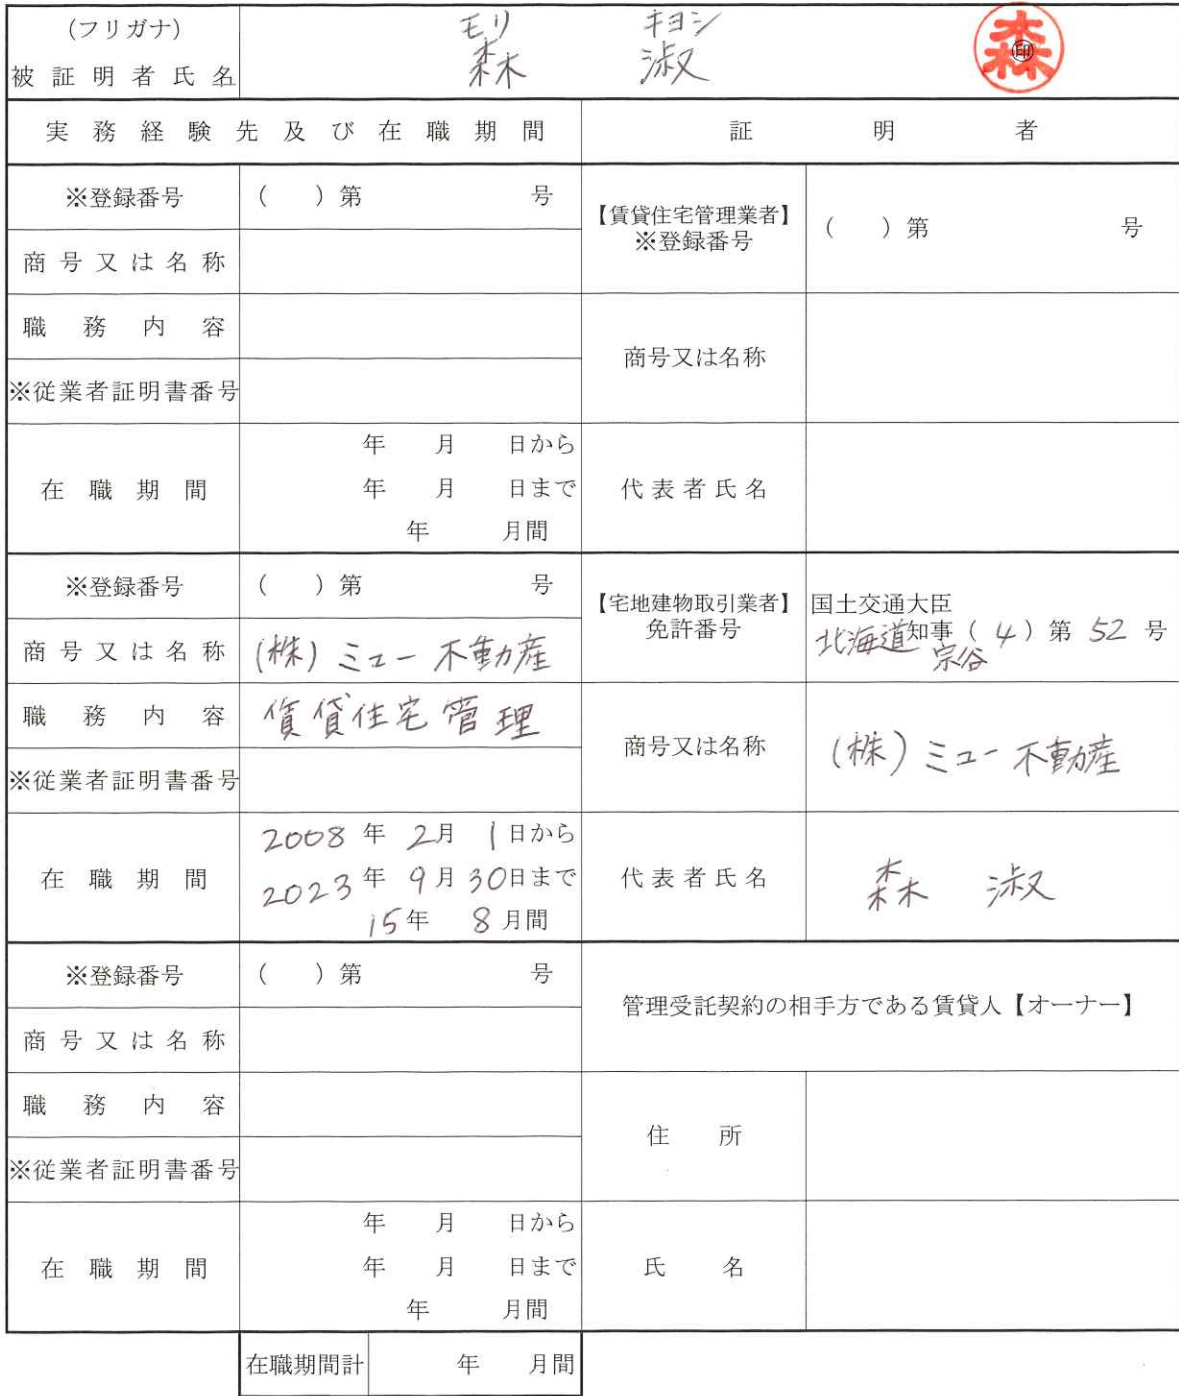 (フリガナ) モリ キヨシ
被証明者氏名 森 淑 ㊞ 森
実務経験先及び在職期間 証明者
※登録番号 ( )第 号
【賃貸住宅管理業者】
※登録番号
( )第 号
商号又は名称
職務内容
商号又は名称
※従業者証明書番号
在職期間
年 月 日から
年 月 日まで
年 月間
代表者氏名
※登録番号 ( )第 号
【宅地建物取引業者】
免許番号
国土交通大臣
北海道知事(4)第 52 号
宗谷
商号又は名称 (株)ミュー不動産
職務内容 賃貸住宅管理
商号又は名称 (株)ミュー不動産
※従業者証明書番号
在職期間
2008年 2月 1日から
2023年 9月 30日まで
15年 8月間
代表者氏名 森 淑
※登録番号 ( )第 号
管理受託契約の相手方である賃貸人【オーナー】
商号又は名称
職務内容
住所
※従業者証明書番号
在職期間
年 月 日から
年 月 日まで
年 月間
氏名
在職期間計 年 月間